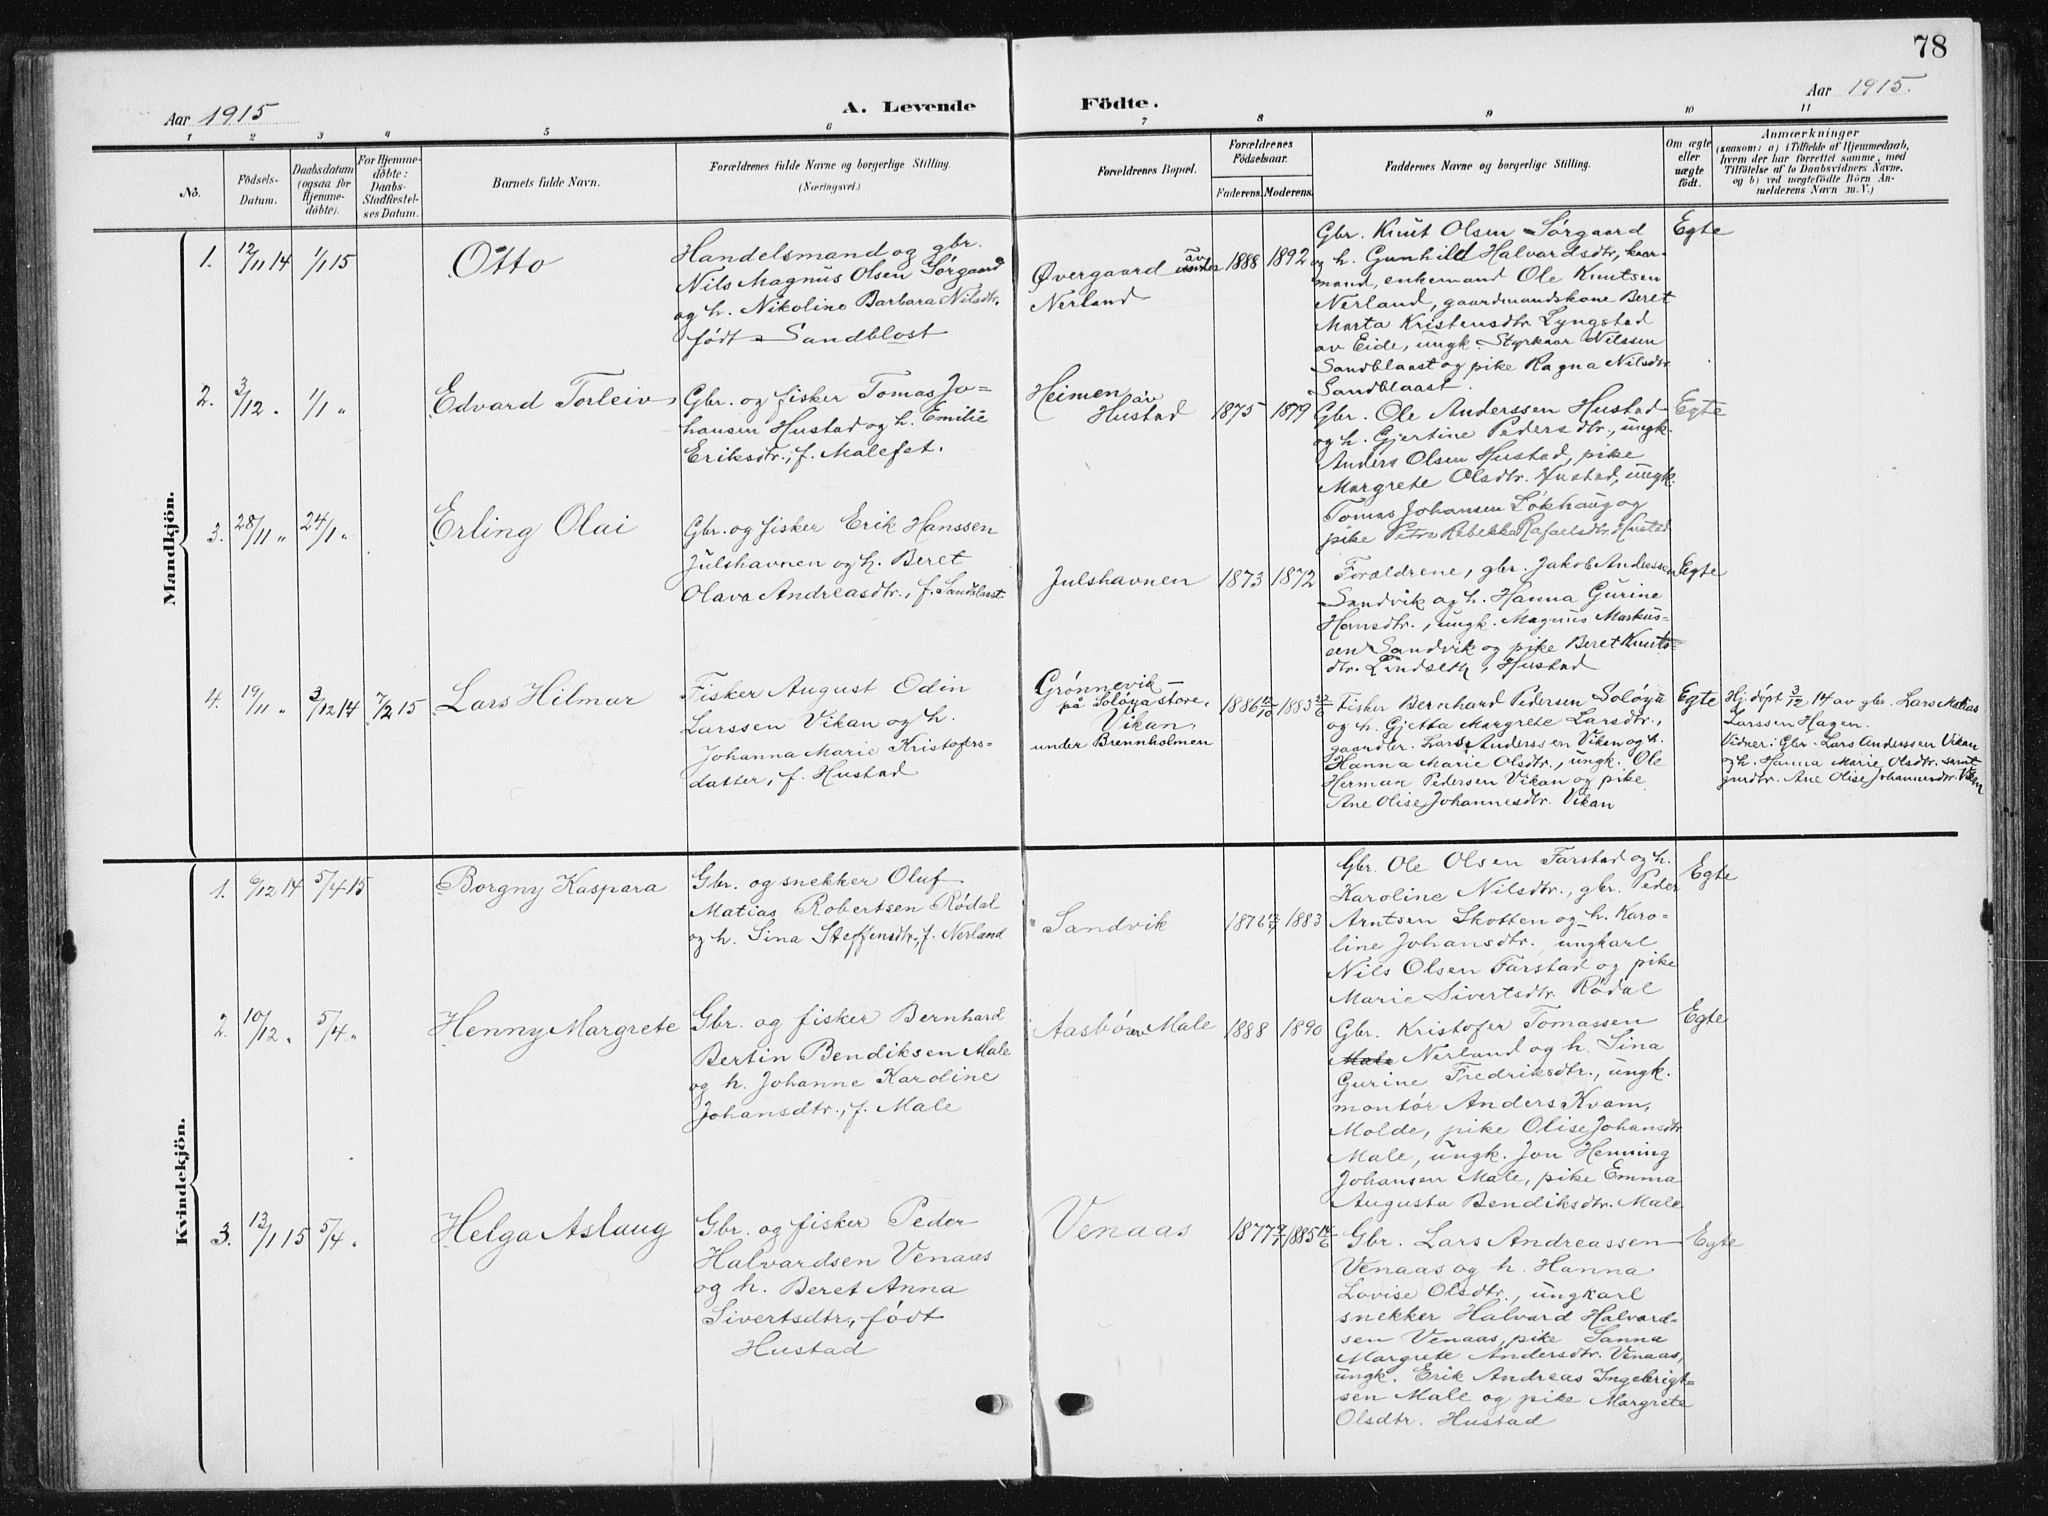 78
Aar 1915
A. Levende
Födte.
Aar 1915.
1 2 3 4 5 6 7 8 9 10 11
No.
Födsels-
Datum.
Daabsdatum
(ogsaa for
Hjemme-
döbte).
For Hjemme-
döbte:
Daabs-
Stadfæstel-
ses Datum.
Barnets fulde Navn.
Forældrenes fulde Navne og borgerlige Stilling.
(Næringsvei.)
Forældrenes Bopæl.
Forældrenes
Födselsaar.
Faderens. Moderens.
Faddernes Navne og borgerlige Stilling.
Om ægte
eller
uægte
födt.
Anmærkninger
(saasom: a) i Tilfælde af Hjemmedaab,
hvem der har forrettet samme, med
Tilföielse af to Daabsvidners Navne,
og b) ved uægtefödte Börn An-
melderens Navn m. V.)
Mandkjön.
1. 12/11 14 1/1 15
Otto
Handelsmand og gbr.
Nils Magnus Olsen Sørgaard
og h. Nikoline Barbara Nilsdtr.
født Sandblost
Øvergaard av
Nerland
1888 1892
Gbr. Knut Olsen Sørgaard
og h. Gunhild Halvardsdtr, kaar-
mand, enkemand Ole Knutsen
Nerland, gaardmandskone Beret
Marta Kristensdtr Lyngstad
av Eide, ungk. Styrkaar Nilssen
Sandblaast og pike Ragna Nilsdtr
Sandblaast.
Egte
2. 3/12 " 1/1 "
Edvard Torleiv
Gbr. og fisker Tomas Jo-
hansen Hustad og h. Emilie
Eriksdtr., f. Malefet.
Heimen av
Hustad
1875 1879
Gbr. Ole Anderssen Hustad
og h. Gjertine Pedersdtr., ungk.
Anders Olsen Hustad, pike
Margrete Olsdtr. Hustad, ungk.
Tomas Johansen Løkhaug og
pike Petra Rebekka Rafaelsdtr. Hustad
Egte
3. 28/11 " 24/1 "
Erling Olai
Gbr. og fisker Erik Hanssen
Julshavnen og h. Beret
Olava Andreasdtr., f. Sandblaast
Julshavnen
1873 1872
Forældrene, gbr. Jakob Andressen
Sandvik og h. Hanna Gurine
Hansdtr., ungk. Magnus Markus-
sen Sandvik og pike Beret Knuts-
dtr. Lindseth, Hustad
Egte
4. 19/11 " 3/12 14 7/2 15
Lars Hilmar
Fisker August Odin
Larssen Vikan og h.
Johanna Marie Kristofers-
datter, f. Hustad
Grønnevik
på Soløya store,
Vikan
under Brennholmen
1886 12/10 1883 22/6
Fisker Bernhard Pedersen Soløya
og h. Gjetta Margrete Larsdtr.,
gaardbr. Lars Anderssen Vikan og h.
Hanna Marie Olsdtr., ungk. Ole
Herman Pedersen Vikan og pike
Ane Olise Johannesdtr. Vikan
Egte
Hj. døpt 3/12 14 av gbr. Lars Matias
Larssen Hagen.
Vidner: Gbr. Lars Anderssen Vikan
og h. Hanna Marie Olsdtr. samt
gurdtr. Ane Olise Johannesdtr. Vikan
Kvindekjön.
1. 6/12 14 5/4 15
Borgny Kaspara
Gbr. og snekker Oluf
Matias Robertsen Rødal
og h. Sina Steffensdtr., f. Nerland
Sandvik
1876 1883
Gbr. Ole Olsen Farstad og h.
Karoline Nilsdtr., gbr. Peder
Arntsen Skotten og h. Karo-
line Johansdtr. ungkarl
Nils Olsen Farstad og pike
Marie Sivertsdtr. Rødal
Egte
2. 10/12 " 5/4 "
Henny Margrete
Gbr. og fisker Bernhard
Bertin Bendiksen Male
og h. Johanne Karoline
Johansdtr., f. Male
Aasbø av Male
1888 1890
Gbr. Kristofer Tomassen
Male Nerland og h. Sina
Gurine Fredriksdtr., ungk.
montør Anders Kvam,
Molde, pike Olise Johansdtr
Male, ungk. Jon Henning
Johansen Male, pike Emma
Augusta Bendiksdtr. Male
Egte
3. 13/1 15 5/4 "
Helga Aslaug
Gbr. og fisker Peder
Halvardsen Venaas
og h. Beret Anna
Sivertsdtr., født
Hustad
Venaas
1877 9/7 1885 14/6
Gbr. Lars Andreassen
Venaas og h. Hanna
Lovise Olsdtr., ungkarl
snekker Halvard Halvard-
sen Venaas, pike Sanna
Margrete Andersdtr. Venaas,
ungk. Erik Andreas Ingebrigt-
sen Male og pike Margrete
Olsdtr. Hustad
Egte